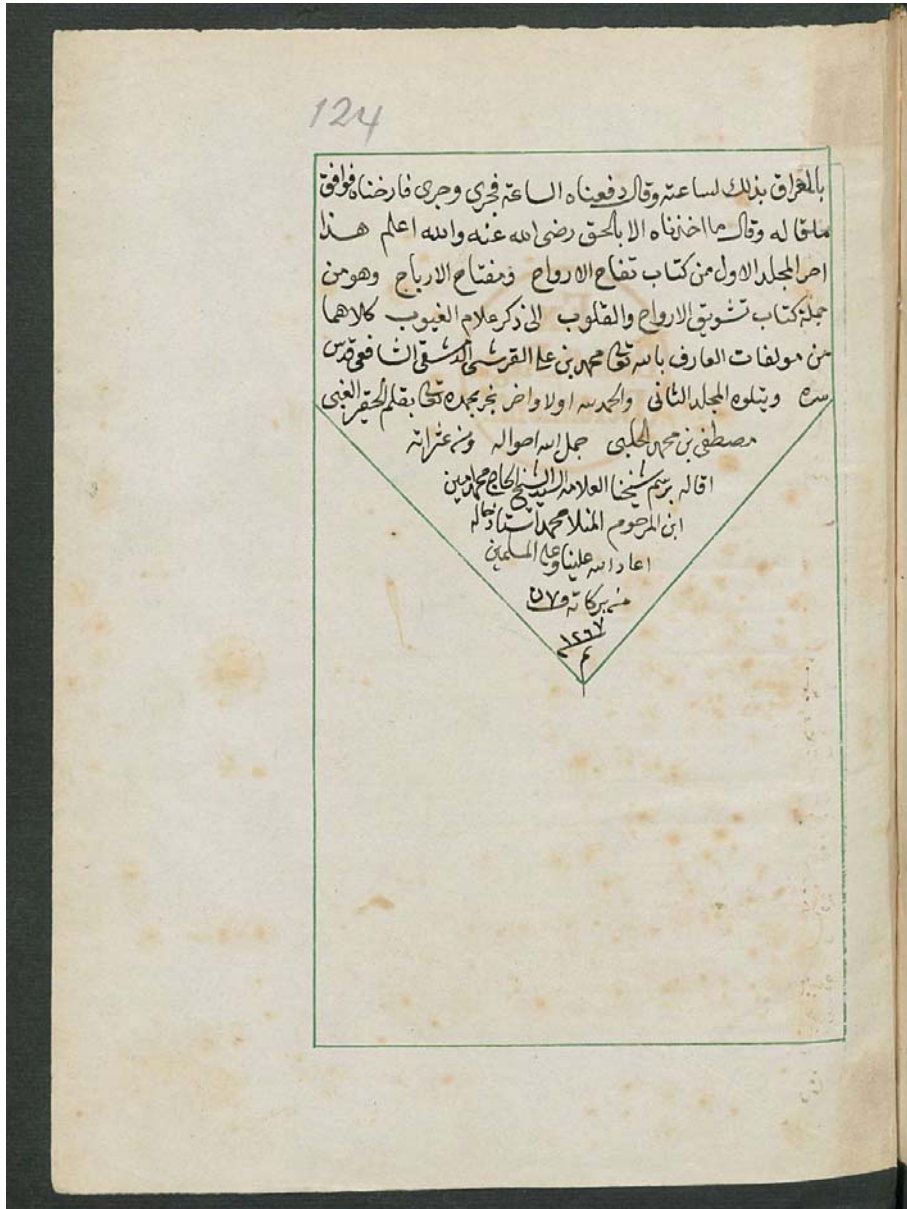 124
بالعراق بذلك لساعته وقال دفعناه الساعة فجرى وجرى فارخناه فوافق
ماقاله وقال ما اخذناه الا بالحق رضى الله عنه والله اعلم هذا
اخر المجلد الاول من كتاب تفاح الارواح ومفتاح الارباح وهو من
جملة كتاب تشويق الارواح والقلوب الى ذكر علام الغيوب كلاهما
من مولفات العارف بالله تعالى محمد بن على القرشى الدمشقى الشافعى قدس
سره ويتلوه المجلد الثانى والحمد لله اولا واخر بحمده تعالى بقلم الحقير الغبى
مصطفى بن محمد الحلبى جمل الله احواله ومن عثراته
اقاله برسم شيخنا العلامه السيد الشيخ الحاج محمد امين
ابن المرحوم المنلا محمد استاذ خاله
اعاد الله علينا وعلى المسلمين
من بركاته
١٢٦٧
م